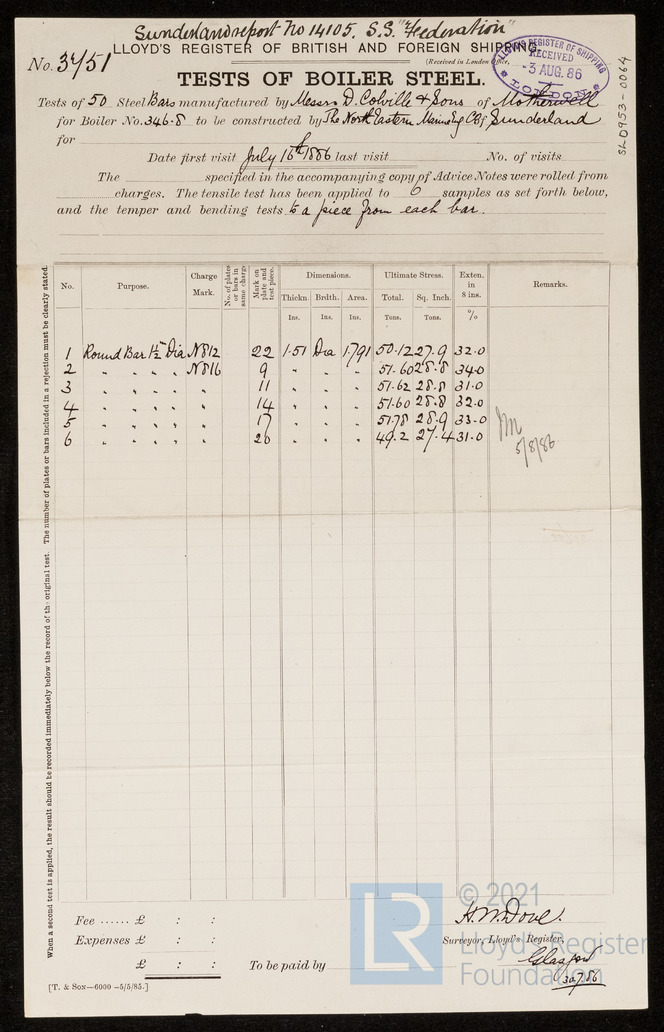 Sunderland report No 14105. S.S. "Federation"
LLOYD'S REGISTER OF BRITISH AND FOREIGN SHIPPING.
No. 3751
(Received in London Office,
LLOYD'S REGISTER OF SHIPPING
RECEIVED
3 AUG. 86
LONDON
SLD953-0064
TESTS OF BOILER STEEL.
Tests of 50 Steel Bars manufactured by Messrs D. Colville & Sons of Motherwell
for Boiler No. 346.8 to be constructed by The North Eastern Marine Eng Co of Sunderland
for
Date first visit July 16th 1886 last visit No. of visits
The specified in the accompanying copy of Advice Notes were rolled from
charges. The tensile test has been applied to 6 samples as set forth below,
and the temper and bending tests to a piece from each bar.
When a second test is applied, the result should be recorded immediately below the record of the original test. The number of plates or bars included in a rejection must be clearly stated.
No. Purpose. Charge Mark. No. of plates or bars in same charge Mark on plate and test piece. Dimensions. Ultimate Stress. Exten. in 8 ins. Remarks.
Thickn. Brdth. Area. Total. Sq. Inch.
Ins. Ins. Ins. Tons. Tons. %
1 Round Bar 1½" Dia N812 22 1.51 Dia 1.791 50.12 27.9 32.0
2 " " " " N816 9 " " " 51.60 28.8 34.0
3 " " " " " 11 " " " 51.62 28.8 31.0
4 " " " " " 14 " " " 51.60 28.8 32.0
5 " " " " " 17 " " " 51.78 28.9 33.0
6 " " " " " 20 " " " 49.2 27.4 31.0
5/8/86
Fee ...... £ : :
Expenses £ : :
£ : :
To be paid by
H. W. Dove.
Surveyor, Lloyd's Register,
Glasgow
30.7.86
[T. & Son—6000 -5/5/85.]
LR
© 2021
Lloyd's Register
Foundation